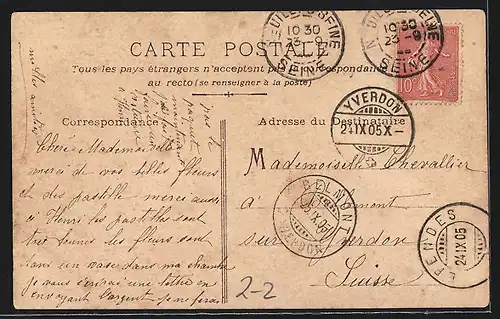 NEUILLY S SEINE
10 30
23 -9
SEINE
NEUILLY S SEINE
10 30
23 -9
SEINE
10
CARTE POSTALE
Tous les pays étrangers n'acceptent pas la correspondance
au recto (se renseigner à la poste)
Correspondance
Adresse du Destinataire
YVERDON
24 IX 05 X-
Chère Mademoiselle
merci de vos belles fleurs
et des pastille merci aussi
a Henri les pastilles sont
très bonnes les fleurs sont
dans un vase dans ma chambre
je vous écrirai une lettre en
envoyant l'argent je ne ferai
pas le
paquet
maintenant
Mademoiselle Chevallier
a Belmont
sur Yverdon
Suisse
BELMONT
IX 05
EPENDES
24 IX 05
2-2